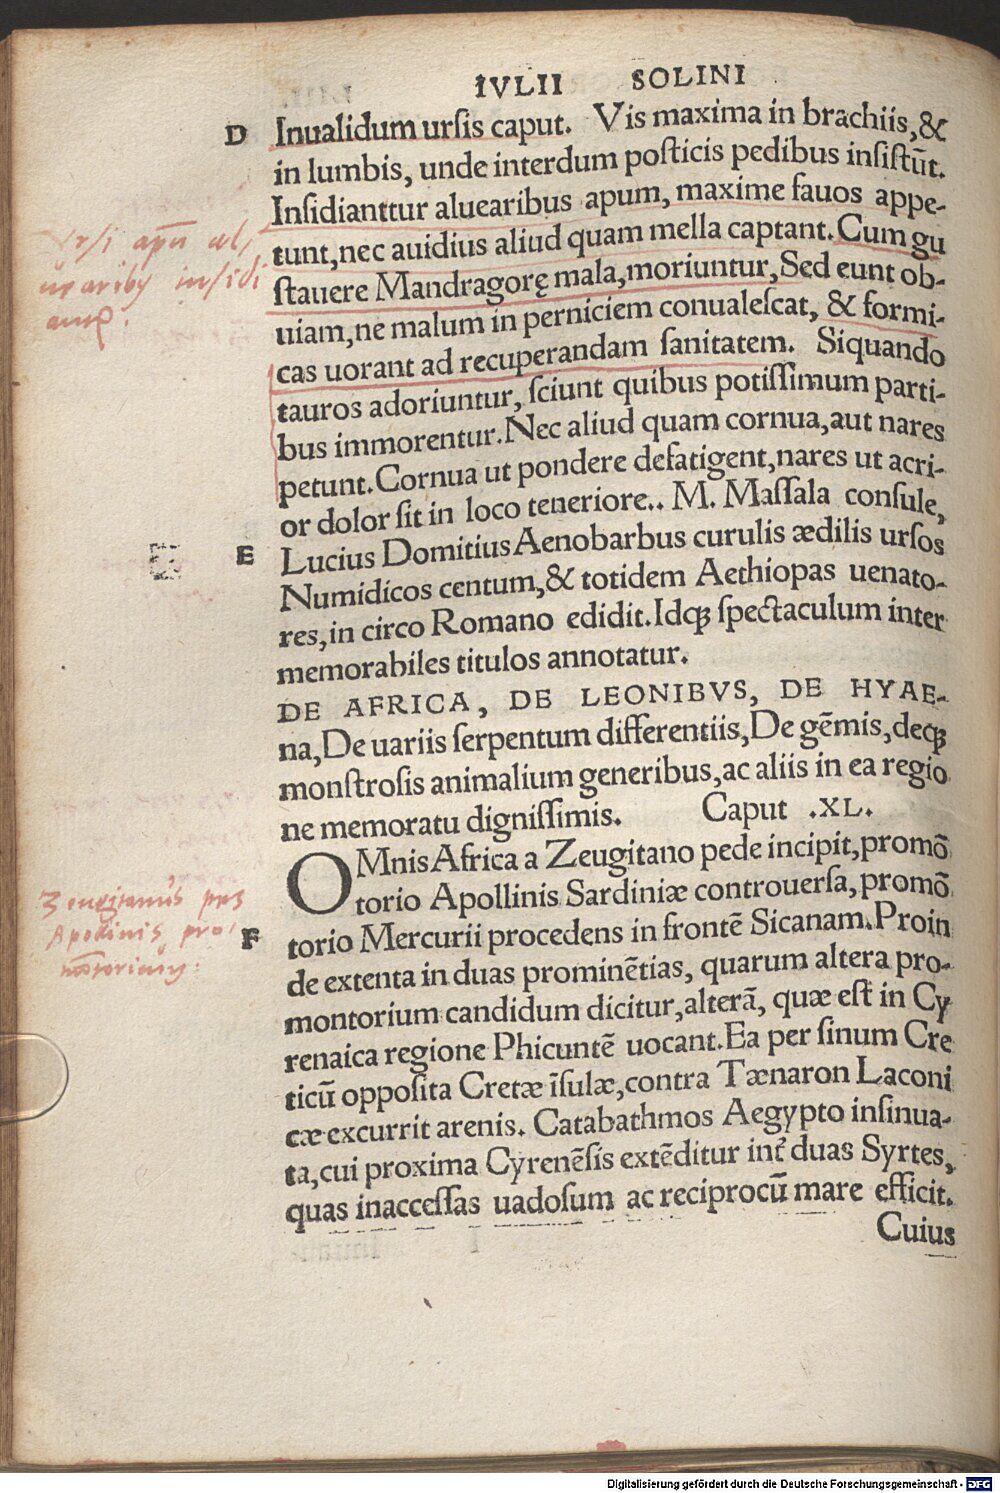 IVLII SOLINI
D Inualidum ursis caput. Vis maxima in brachiis, &
in lumbis, unde interdum posticis pedibus insistūt.
Insidianttur aluearibus apum, maxime fauos appe-
tunt, nec auidius aliud quam mella captant. Cum gu
stauere Mandragorę mala, moriuntur, Sed eunt ob-
uiam, ne malum in perniciem conualescat, & formi-
cas uorant ad recuperandam sanitatem. Siquando
tauros adoriuntur, sciunt quibus potissimum parti-
bus immorentur. Nec aliud quam cornua, aut nares
petunt. Cornua ut pondere defatigent, nares ut acri-
or dolor sit in loco teneriore.. M. Massala consule,
E Lucius Domitius Aenobarbus curulis ædilis ursos
Numidicos centum, & totidem Aethiopas uenato-
res, in circo Romano edidit. Idqꝫ spectaculum inter
memorabiles titulos annotatur.
DE AFRICA, DE LEONIBVS, DE HYAE-
na, De uariis serpentum differentiis, De gēmis, deqꝫ
monstrosis animalium generibus, ac aliis in ea regio
ne memoratu dignissimis. Caput .XL.
OMnis Africa a Zeugitano pede incipit, promō
torio Apollinis Sardiniæ controuersa, promō
F torio Mercurii procedens in frontē Sicanam. Proin
de extenta in duas prominētias, quarum altera pro-
montorium candidum dicitur, alterā, quæ est in Cy
renaica regione Phicuntē uocant. Ea per sinum Cre
ticū opposita Cretæ īsulæ, contra Tænaron Laconi
cæ excurrit arenis. Catabathmos Aegypto insinua-
ta, cui proxima Cyrenēsis extēditur int̄ duas Syrtes,
quas inaccessas uadosum ac reciprocū mare efficit.
Cuius
Vrsi apū al,
uearibus insidi
antur.
Zeugitanus pes
Apollinis pro
mōtorium:
Digitalisierung gefördert durch die Deutsche Forschungsgemeinschaft - DFG